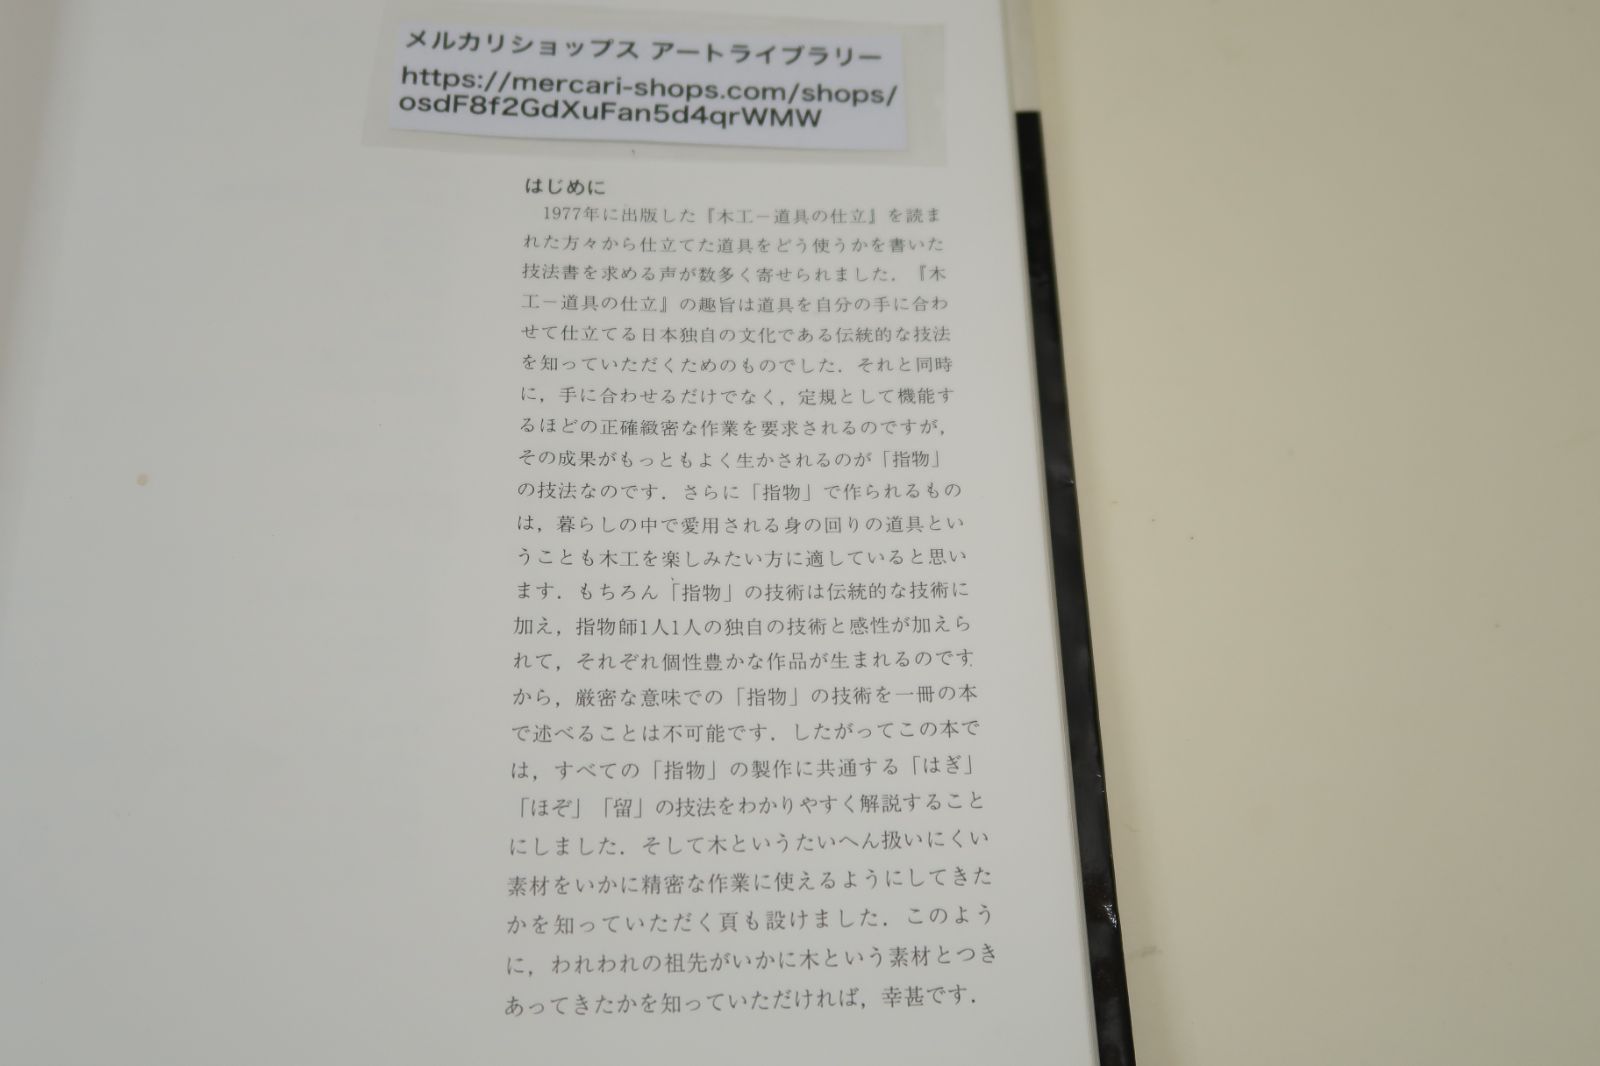 メルカリショップス アートライブラリー
https://mercari-shops.com/shops/
osdF8f2GdXuFan5d4qrWMW
はじめに
1977年に出版した『木工－道具の仕立』を読ま
れた方々から仕立てた道具をどう使うかを書いた
技法書を求める声が数多く寄せられました．『木
工－道具の仕立』の趣旨は道具を自分の手に合わ
せて仕立てる日本独自の文化である伝統的な技法
を知っていただくためのものでした．それと同時
に，手に合わせるだけでなく，定規として機能す
るほどの正確緻密な作業を要求されるのですが，
その成果がもっともよく生かされるのが「指物」
の技法なのです．さらに「指物」で作られるもの
は，暮らしの中で愛用される身の回りの道具とい
うことも木工を楽しみたい方に適していると思い
ます．もちろん「指物」の技術は伝統的な技術に
加え，指物師1人1人の独自の技術と感性が加えら
れて，それぞれ個性豊かな作品が生まれるのです
から，厳密な意味での「指物」の技術を一冊の本
で述べることは不可能です．したがってこの本で
は，すべての「指物」の製作に共通する「はぎ」
「ほぞ」「留」の技法をわかりやすく解説すること
にしました．そして木というたいへん扱いにくい
素材をいかに精密な作業に使えるようにしてきた
かを知っていただく頁も設けました．このよう
に，われわれの祖先がいかに木という素材とつき
あってきたかを知っていただければ，幸甚です．